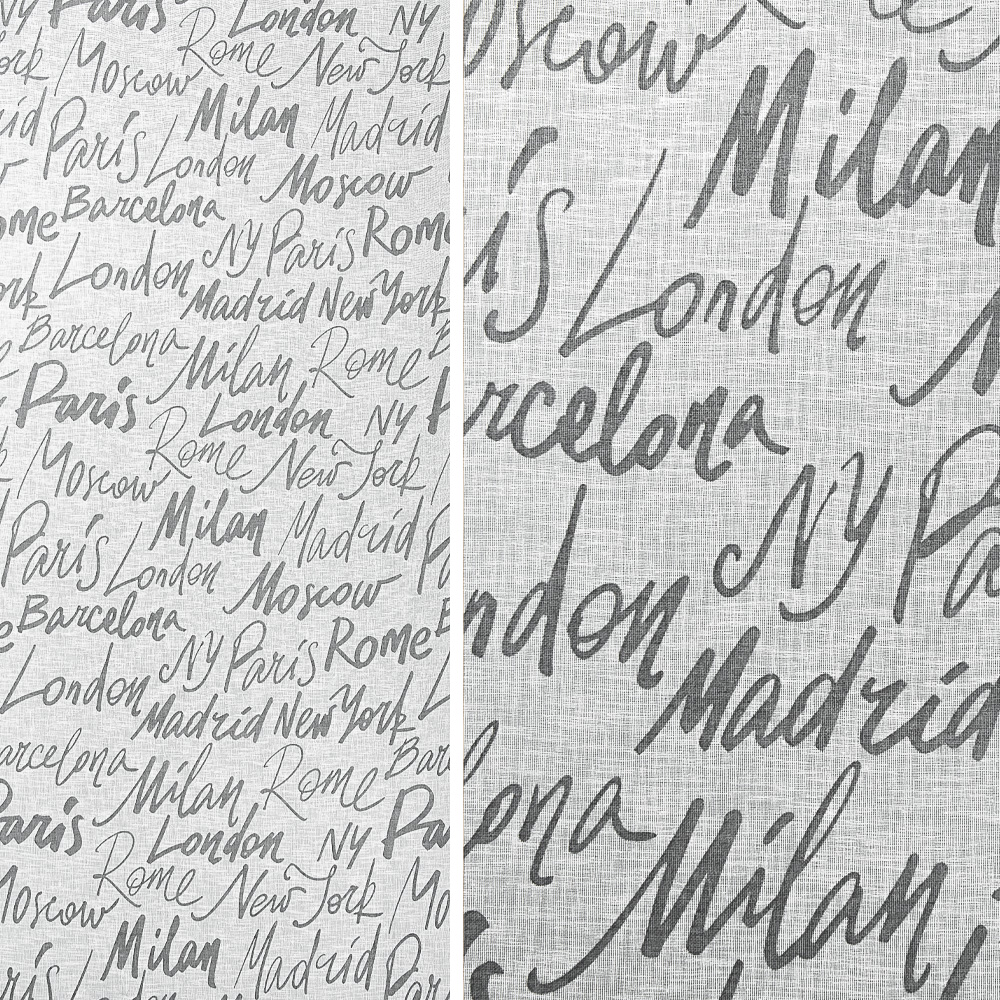 NY Paris London NY
York Moscow Rome New York
Madrid Paris London Milan Madrid
Moscow
Rome Barcelona NY Paris Rome
York London Madrid New York
Barcelona Milan Rome
Paris London NY
Moscow Rome New York
Paris London Milan Madrid
Moscow
Barcelona NY Paris Rome
London Madrid New York
Barcelona Milan Rome Bar
Paris London NY Pa
Moscow Rome New York Mo
Paris London Milan Madrid Pa
oscow
Milan
is London
rcelona
NY Pa
ndon
Madrid
ona
Milan